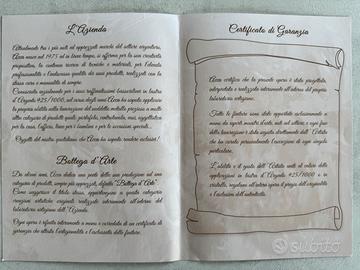 L'Azienda
Attualmente tra i più noti ed apprezzati marchi del settore argentiero,
Acca nasce nel 1975 ed in breve tempo, si afferma per la sua creatività
propositiva, la continua ricerca di tecniche e materiali, per l'elevata
professionalità e l'indiscussa qualità dei suoi prodotti, realizzati con la
stessa cura e manualità di sempre.
Conosciuta inizialmente per i suoi raffinatissimi bassorilievi in lastra
d'Argento 925/1000, nel corso degli anni Acca ha saputo applicare
la propria abilità nella lavorazione del suddetto metallo prezioso a molte
altre categorie di prodotti quali: portafoto, centrotavola, vasi, oggettistica
per la casa, l'ufficio, linea per i bambini e per le occasioni speciali...
Oggetti del nostro quotidiano che Acca ha saputo rendere esclusivi!
Bottega d'Arte
Da alcuni anni, Acca dedica una parte della sua produzione ad una
categoria di prodotti, sempre più apprezzati, definita "Bottega d'Arte".
Come suggerisce il titolo stesso, appartengono a questa categoria
creazioni artistiche eseguite interamente all'interno del
laboratorio artigiano dell'Azienda.
Ogni opera è rifinita interamente a mano e corredata di un certificato di
garanzia che attesta l'artigianalità e l'esclusività della fattura.
Certificato di Garanzia
Acca certifica che la presente opera è stata progettata,
interpretata e realizzata interamente all'interno del proprio
laboratorio artigiano.
Tutte le finiture sono state apportate esclusivamente a
mano dai nostri maestri d'arte, noti nel settore, e ogni fase
della lavorazione è stata seguita direttamente dall'Artista
che ha curato personalmente l'esecuzione di ogni singolo
particolare.
L'abilità e il gusto dell'Artista uniti al valore delle
applicazioni in lastra d'Argento 925/1000 e in
cristallo, regalano all'intera opera il pregio dell'originalità
e l'esclusività dell'ambiente.
subito